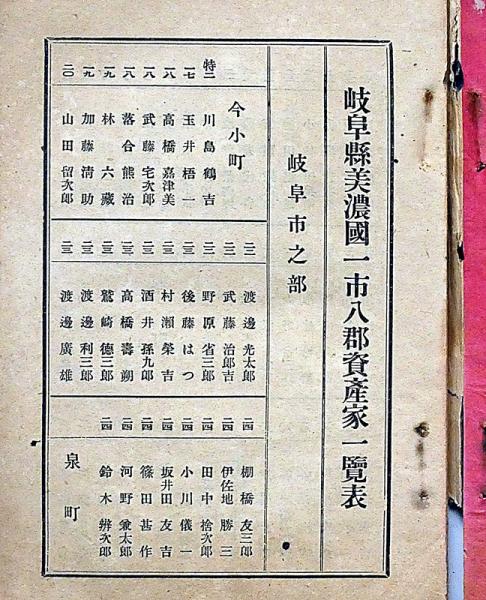 岐阜縣美濃國一市八郡資產家一覽表
岐阜市之部
今小町
特二 川島鶴吉
一七 玉井梧一
一八 高橋嘉津美
一八 武藤宅次郎
一八 落合熊治
一九 林六藏
一九 加藤清助
二〇 山田留次郎
二二 渡邊光太郎
二二 武藤治郎吉
二二 野原省三郎
二三 後藤はつ
二三 村瀨榮吉
二三 酒井孫九郎
二三 高橋壽朔
二三 鷲崎德三郎
二三 渡邊利三郎
二三 渡邊廣雄
二四 棚橋友三郎
二四 伊佐地勝三
二四 田中捨次郎
二四 小川儀一
二四 坂井田友吉
二四 篠田甚作
二四 河野兼太郎
二四 鈴木辨次郎
泉町